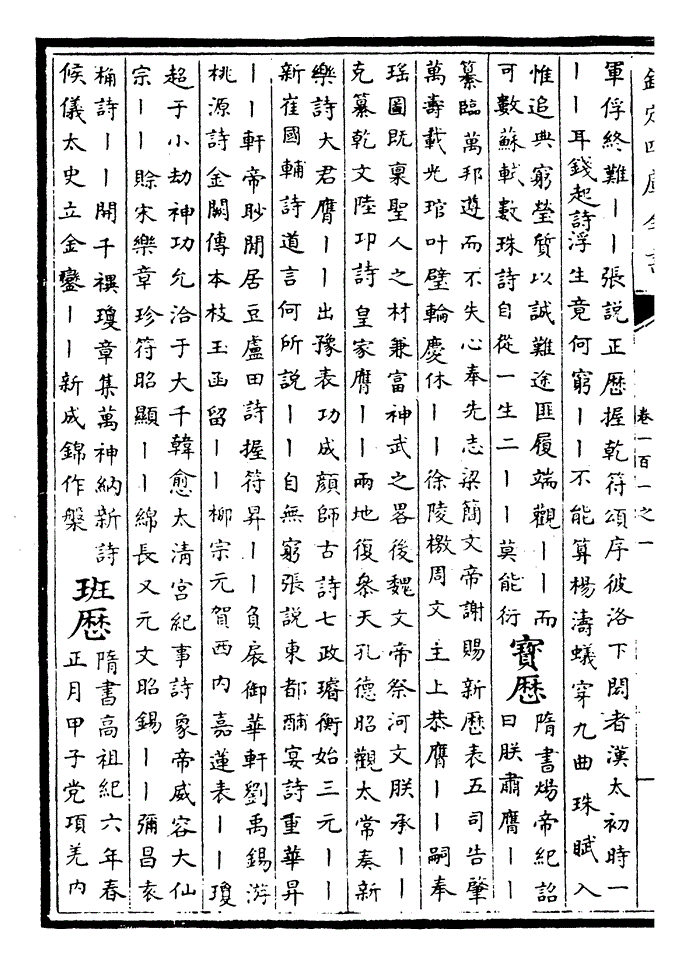 欽定四庫全書 卷一百一之一 一
軍俘終難丨丨張說正厯握乾符頌序彼洛下閎者漢太初時一
丨丨耳錢起詩浮生竟何窮丨丨不能算楊濤蟻穿九曲珠賦入
惟追典窮瑩質以誠難途匪履端觀丨丨而
可數蘇軾數珠詩自從一生二丨丨莫能衍
寶厯
隋書煬帝紀詔
曰朕肅膺丨丨
纂臨萬邦遵而不失心奉先志梁簡文帝謝賜新厯表五司告肇
萬壽載光琯叶璧輪慶休丨丨徐陵檄周文主上恭膺丨丨嗣奉
瑶圖既禀聖人之材兼富神武之畧後魏文帝祭河文朕承丨丨
克纂乾文陸卭詩皇家膺丨丨兩地復叅天孔德昭觀太常奏新
樂詩大君膺丨丨出豫表功成顔師古詩七政璿衡始三元丨丨
新崔國輔詩道言何所說丨丨自無窮張說東都酺宴詩重華昇
丨丨軒帝眇閒居豆盧田詩握符昇丨丨負扆御華軒劉禹錫游
桃源詩金闕傳本枝玉函留丨丨柳宗元賀西内嘉蓮表丨丨瓊
超于小劫神功允洽于大千韓愈太清宮紀事詩象帝威容大仙
宗丨丨賒宋樂章珍符昭顯丨丨綿長又元文昭錫丨丨彌昌袁
桷詩丨丨開千禩瓊章集萬神納新詩
候儀太史立金鑾丨丨新成錦作槃
班厯
隋書高祖紀六年春
正月甲子党項羌内